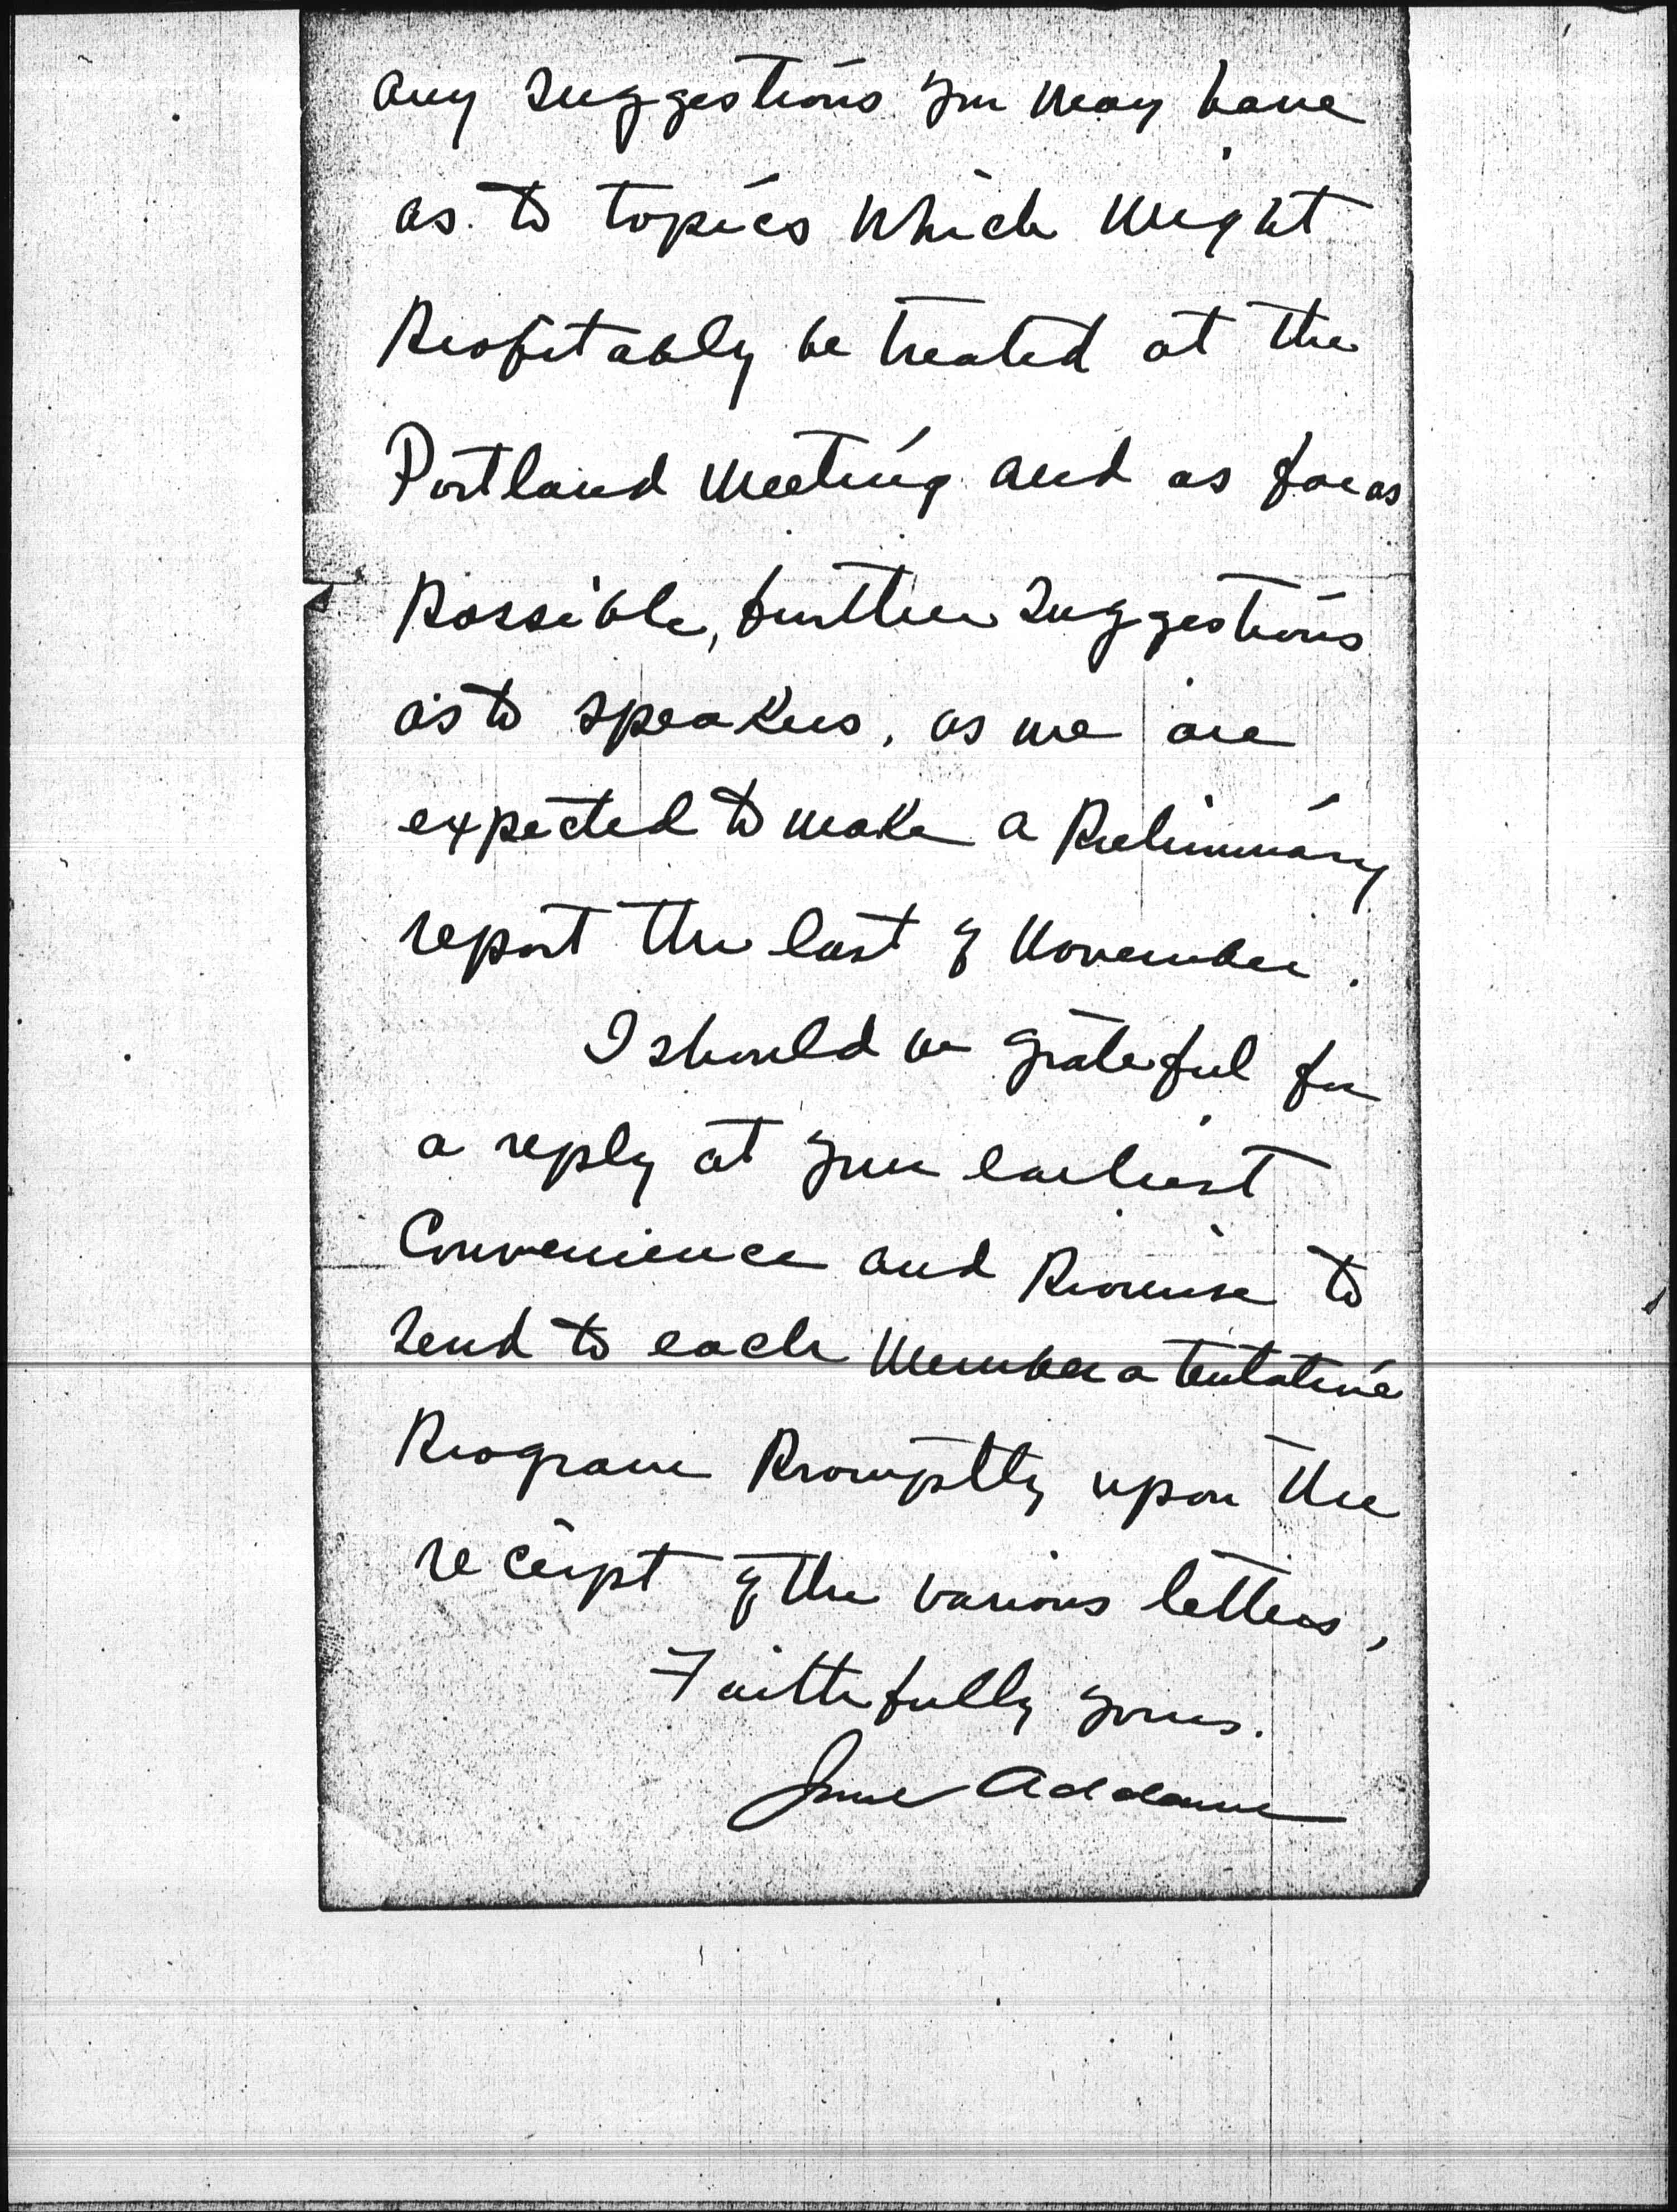 any suggestions you may have
as to topics which might
profitably be treated at the
Portland meeting and as far as
possible, further suggestions
as to speakers, as we are
expected to make a preliminary
report the last of November.
I should be grateful for
a reply at your earliest
convenience and promise to
send to each member a tentative
program promptly upon the
receipt of the various letters,
Faithfully yours.
Jane Addams